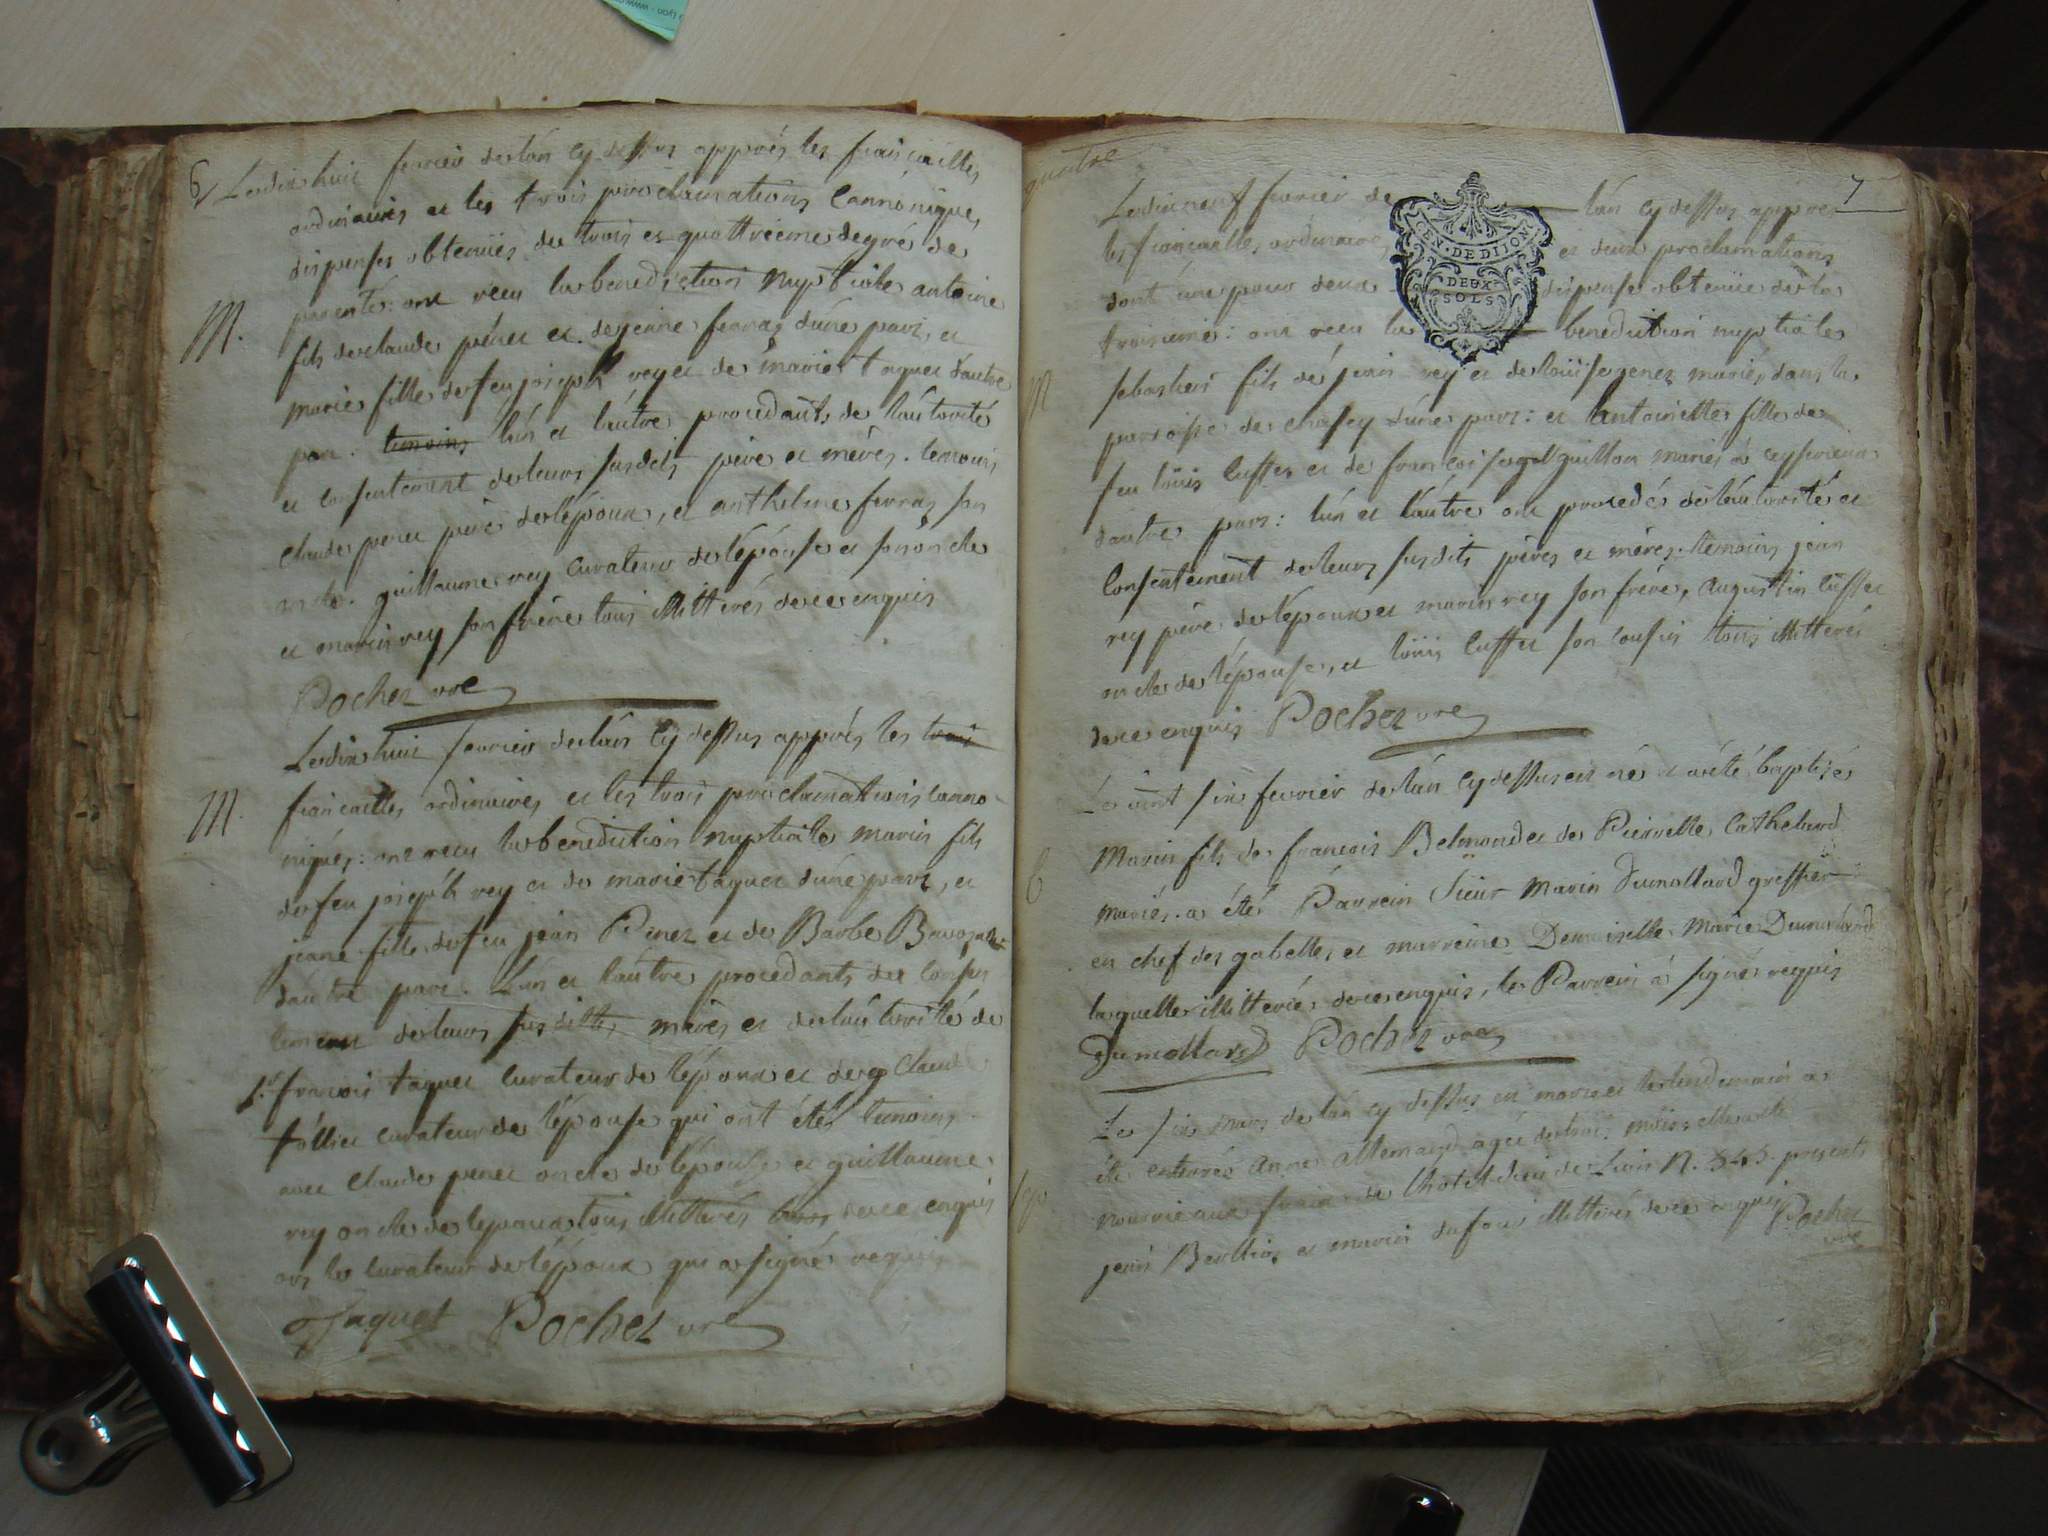 6
Le dix huit fevrier de l'an cy dessus apprés les fiançailles
ordinaires et les trois proclamations cannoniques
dispenses obtenuës du trois et quattrieme degré de
parenté: ont recu la benediction nuptiale antoine
M.
fils de claude perret et de jeane ferraz d'une part, et
marie fille de feu joseph rey et de marie taquet d'autre
part. temoins l'un et l'autre procedants de l'autorité
et consentement de leurs susdits pére et méres. temoins
claude peret pére de l'époux, et anthelme ferraz son
oncle. guillaume rey curateur de l'épouse et son oncle
et marin rey son frére tous illitterés de ce enquis
Pochet vre
Le dix huit fevrier de l'an cy dessus apprés les trois
M.
fiancailles ordinaires et les trois proclamations canno-
niques: ont recu la benediction nuptiale marin fils
de feu joseph rey et de marie taquet d'une part, et
jeane fille de feu jean Peret et de Barbe
d'autre part. L'un et l'autre procedants du consen
tement de leurs susdittes méres et de l'autorité de
Sr. francois taquet curateur de l'époux et de Claude
tollier curateur de l'épouse qui ont étés temoins
avec claude peret oncle de l'épouse et guillaume
rey oncle de l'époux tous illitterés de ce enquis
ors le curateur de l'époux qui a signé requis
Taquet Pochet vre
quatre
7
Le dix neuf fevrier de l'an cy dessus appres
les fiancailles ordinaires et deux proclamations
dont une pour deux dispense obtenuë de la
troisieme: ont recu la benediction nuptiale
GEN. DE DIJON
DEUX
SOLS
M
sebastien fils de jean rey et de loüise genet mariés dans la
paroisse de chasey d'une part: et antoinette fille de
feu loüis cusset et de francoise guillon mariés à ceyserieux
d'autre part: l'un et l'autre ont procedés de l'autorité et
consentement de leurs susdits péres et méres. temoins jean
rey pére de l'époux et marin rey son frére, augustin cusset
oncle de l'épouse, et loüis cusset son cousin tous illitterés
de ce enquis Pochet vre
Le vint six fevrier de l'an cy dessus est né et a été baptisé
B
Marin fils de francois Belmond et de Pierrette Cathelard
mariés. a été Parrein Sieur Marin Dumollard greffier
en chef des gabelles, et marreine Demoiselle Marie Dumollard
laquelle illitterée de ce enquis, le Parrein a signé requis
Dumollard Pochet vre
Le six mars de l'an cy dessus est morte et le lendemain a
été enterrée anne allemand agée de trois mois
nourrie aux frais de l'hotel dieu de Lion N. 545. presents
jean Berthier et marin dufour illitterés de ce enquis Pochet
vre